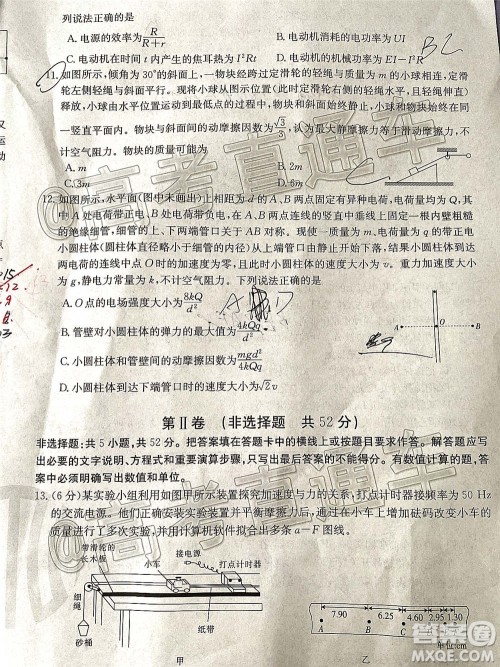 列说法正确的是
A. 电源的效率为 R/(R+r)
B. 电动机消耗的电功率为 UI
C. 电动机在时间 t 内产生的焦耳热为 I²Rt
D. 电动机的机械功率为 EI-I²R
BC
11. 如图所示，倾角为 30°的斜面上，一物块经跨过定滑轮的轻绳与质量为 m 的小球相连，定滑
轮左侧轻绳与斜面平行。现将小球从图示位置(此时轻绳水平且与斜面垂直，且轻绳伸直)
释放，小球由水平位置运动到最低点的过程中，物块和斜面始终静止，小球和物块始终在同
一竖直平面内。物块与斜面间的动摩擦因数为 √3/3，认为最大静摩擦力等于滑动摩擦力，不
计空气阻力。物块的质量可能为
A. m
B. 2m
C. 3m
D. 6m
12. 如图所示，水平面(图中未画出)上相距为 d 的 A、B 两点固定有异种电荷，电荷量均为 Q，
其中 A 处电荷带正电、B 处电荷带负电，在 A、B 两点连线的竖直中垂线上固定一根内壁粗糙
的绝缘细管，细管的上、下两端管口关于 AB 对称。现使一质量为 m、电荷量为 q 的带正电
小圆柱体(圆柱体直径略小于细管内径)从上端管口由静止开始下落，结果小圆柱体到达
两电荷的连线中点 O 时的加速度为零，且此时小圆柱体的速度大小为 v。重力加速度大小
为 g，静电力常量为 k，不计空气阻力。下列说法正确的是
A. O 点的电场强度大小为 8kQ/d²
B. 管壁对小圆柱体的弹力的最大值为 4kQq/d²
C. 小圆柱体和管壁间的动摩擦因数为 mgd²/4kQq
D. 小圆柱体到达下端管口时的速度大小为 √2 v
A
O
B
第Ⅱ卷 (非选择题 共 52 分)
非选择题：共 5 小题，共 52 分。把答案填在答题卡中的横线上或按题目要求作答。解答题应写
出必要的文字说明、方程式和重要演算步骤，只写出最后答案的不能得分。有数值计算的题，答
案中必须明确写出数值和单位。
13. (6 分)某实验小组利用如图甲所示装置探究加速度与力的关系，打点计时器接频率为 50 Hz
的交流电源。他们正确安装实验装置并平衡摩擦力后，通过在小车上增加砝码改变小车的
质量进行了多次实验，并用计算机软件拟合出多条 a-F 图线。
带滑轮的
长木板
小车
接电源
打点计时器
细绳
砂桶
纸带
甲
7.90 6.25 4.60 2.95 1.30
A B C
单位:cm
乙
高考直通车
高考直通车
答案圈
MXQE.COM